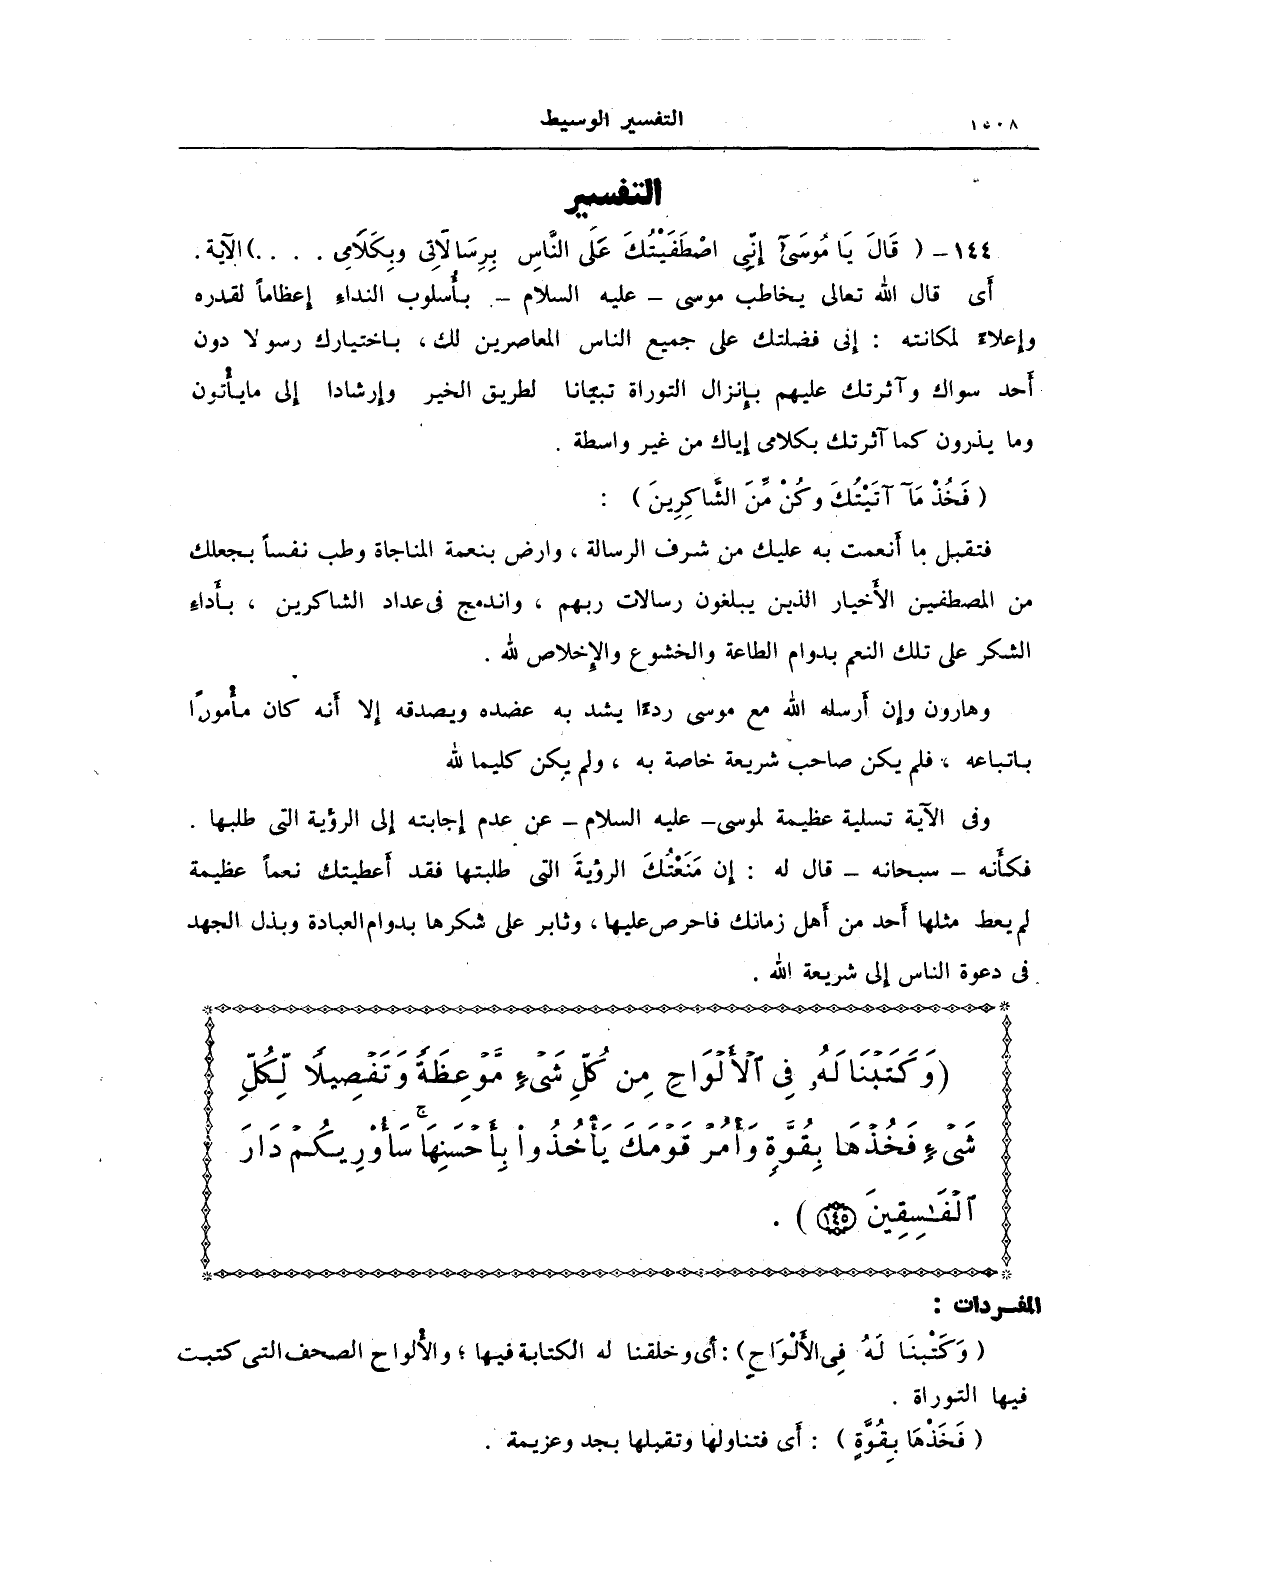 ١٥٠٨
التفسير الوسيط
التفسير
١٤٤ - ( قَالَ يَا مُوسَىٓ إِنِّي اصْطَفَيْتُكَ عَلَى النَّاسِ بِرِسَالَاتِى وبِكَلَامِى . . . .) الآية .
أى قال الله تعالى يخاطب موسى - عليه السلام - بأُسلوب النداء إعظاماً لقدره
وإعلاءً لمكانته : إنى فضلتك على جميع الناس المعاصرين لك ، باختيارك رسولا دون
أحد سواك وآثرتك عليهم بإنزال التوراة تبيانا لطريق الخير وإرشادا إلى مايأْتون
وما يذرون كما آثرتك بكلامى إياك من غير واسطة .
( فَخُذْ مَآ آتَيْتُكَ وكُنْ مِّنَ الشَّاكِرِينَ ) :
فتقبل ما أنعمت به عليك من شرف الرسالة ، وارض بنعمة المناجاة وطب نفساً بجعلك
من المصطفين الأخيار الذين يبلغون رسالات ربهم ، واندمج فى عداد الشاكرين ، بأداء
الشكر على تلك النعم بدوام الطاعة والخشوع والإخلاص لله .
وهارون وإن أرسله الله مع موسى ردءًا يشد به عضده ويصدقه إلا أنه كان مأْمورًا
باتباعه ، فلم يكن صاحب شريعة خاصة به ، ولم يكن كليما لله
وفى الآية تسلية عظيمة لموسى - عليه السلام - عن عدم إجابته إلى الرؤية التى طلبها .
فكأنه - سبحانه - قال له : إن مَنَعْتُكَ الرؤيةَ التى طلبتها فقد أعطيتك نعماً عظيمة
لم يعط مثلها أحد من أهل زمانك فاحرص عليها ، وثابر على شكرها بدوام العبادة وبذل الجهد
فى دعوة الناس إلى شريعة الله .
(وَكَتَبْنَا لَهُۥ فِى ٱلْأَلْوَاحِ مِن كُلِّ شَىْءٍ مَّوْعِظَةً وَتَفْصِيلًا لِّكُلِّ
شَىْءٍ فَخُذْهَا بِقُوَّةٍ وَأْمُرْ قَوْمَكَ يَأْخُذُوا۟ بِأَحْسَنِهَا ۚ سَأُو۟رِيكُمْ دَارَ
ٱلْفَـٰسِقِينَ ١٤٥ ) .
المفردات :
( وَكَتْبنَا لَهُ فِى الأَلْوَاحِ ) : أى وخلقنا له الكتابة فيها ؛ والأَلواح الصحف التى كتبت
فيها التوراة .
( فَخُذْهَا بِقُوَّةٍ ) : أى فتناولها وتقبلها بجد وعزيمة .